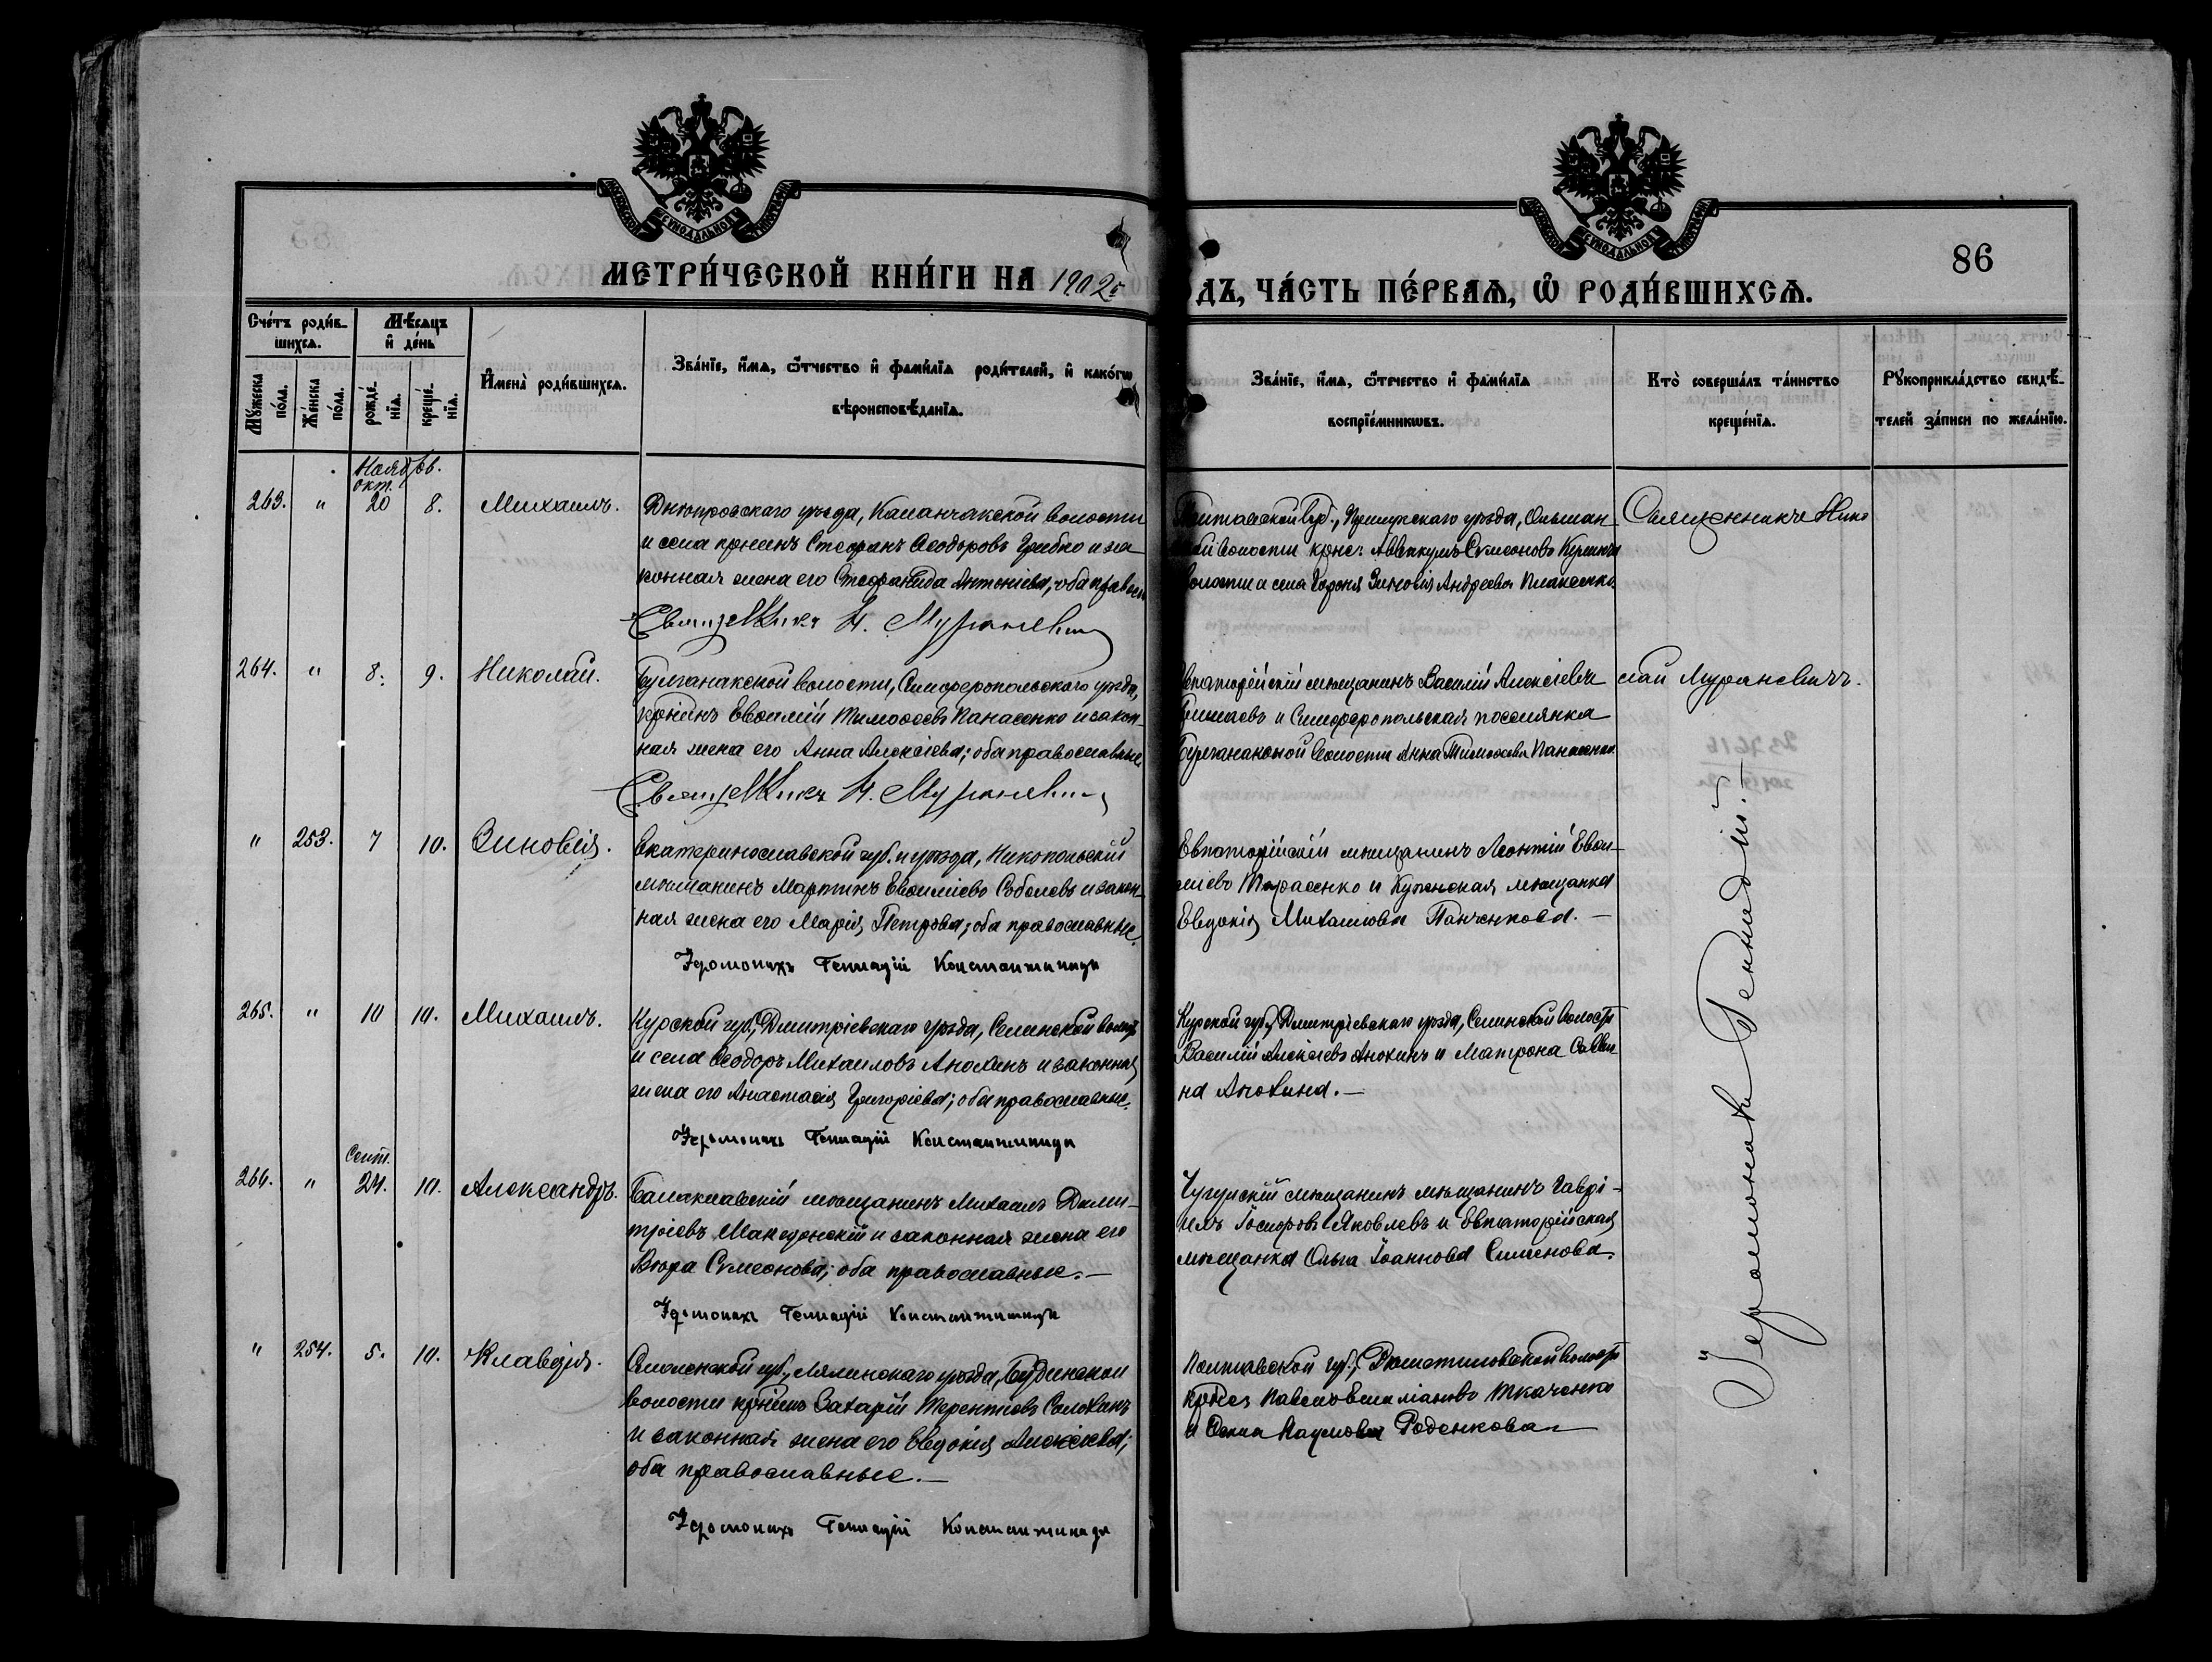 МЕТРИ́ЧЕСКОЙ КНИ́ГИ НА 1902
ДЪ, ЧА́СТЬ ПЕ́РВАѦ, Ѡ РОДИ́ВШИХСѦ.
86
Сче́тъ роди́в-
шихсѧ.
Мѣсѧцъ
и҆ де́нь
Мꙋ́жеска
по́ла.
Же́нска
по́ла.
рожде́-
нїѧ.
креще́-
нїѧ.
И҆мена̀ роди́вшихсѧ.
Зва́нїе, и҆́мѧ, ѻ҆́тчество и҆ фами́лїѧ роди́телей, и҆ како́гѡ
вѣроисповѣ́данїѧ.
Зва́нїе, и҆́мѧ, ѻ҆те́чество и҆ фами́лїѧ
воспрїе́мникѡвъ.
Кто̀ соверша́лъ та́инство
креще́нїѧ.
Рꙋкоприкла́дство свидѣ́-
телей за́писи по жела́нїю.
Ноября
окт.
263. " 20 8. Михаилъ.
Днѣпровскаго уѣзда, Каланчакской волости
и села Стефанъ Ѳеодоровъ Грибко и за-
конная жена его Стефанида Антоніева; оба правосл
Священникъ Н. Мураневичъ
Полтавской губ., уѣзда,
волости Аввакумъ Симеоновъ
волости и села Зиновія Андреева
Священникъ Нико
264. " 8. 9. Николай.
Булганакской волости, Симферопольскаго уѣзда,
Евѳимій Тимоѳеевъ Панасенко и закон-
ная жена его Анна Алексіева; оба православные
Священникъ Н. Мураневичъ
Евпаторійскій мѣщанинъ Василій Алексіевъ
и Симферопольская поселянка
волости Анна Тимоѳеева Панасенко.
лай Мураневичъ.
" 253. 7 10. Зиновія.
Екатеринославской губ. и уѣзда, Никопольскій
мѣщанинъ Мартинъ Евѳиміевъ Соболевъ и закон-
ная жена его Марія Петрова; оба православные.
Іеромонахъ Геннадій Константиниди
Евпаторійскій мѣщанинъ Леонтій Евѳи-
міевъ Тарасенко и мѣщанка
Евдокія Михаилова Панченкова.—
Іеромонахъ Геннадій.—
265. " 10 10. Михаилъ.
Курской губ., Дмитріевскаго уѣзда, Селинской волости
и села Ѳеодоръ Михаиловъ Анохинъ и законная
жена его Анастасія Григоріева; оба православные.
Іеромонахъ Геннадій Константиниди
Курской губ., Дмитріевскаго уѣзда, Селинской волости
Василій Алексіевъ Анохинъ и Матрона Савви-
на Анохина.—
Сент.
266. " 24. 10. Александръ.
Балаклавскій мѣщанинъ Михаилъ Дими-
тріевъ Македонскій и законная жена его
Вѣра Симеонова; оба православные.—
Іеромонахъ Геннадій Константиниди
Чугуевскій мѣщанинъ мѣщанинъ Гаврі-
илъ Іосифовъ Яковлевъ и Евпаторійская
мѣщанка Ольга Іоаннова Симонова.
" 254. 5. 10. Клавдія.
Смоленской губ., уѣзда, Будинской
волости Захарій Терентіевъ Солохинъ
и законная жена его Евдокія Алексіева;
оба православные.—
Іеромонахъ Геннадій Константиниди
Полтавской губ., волости
Павелъ Емиліановъ Ткаченко
и Наумова Роденкова.—